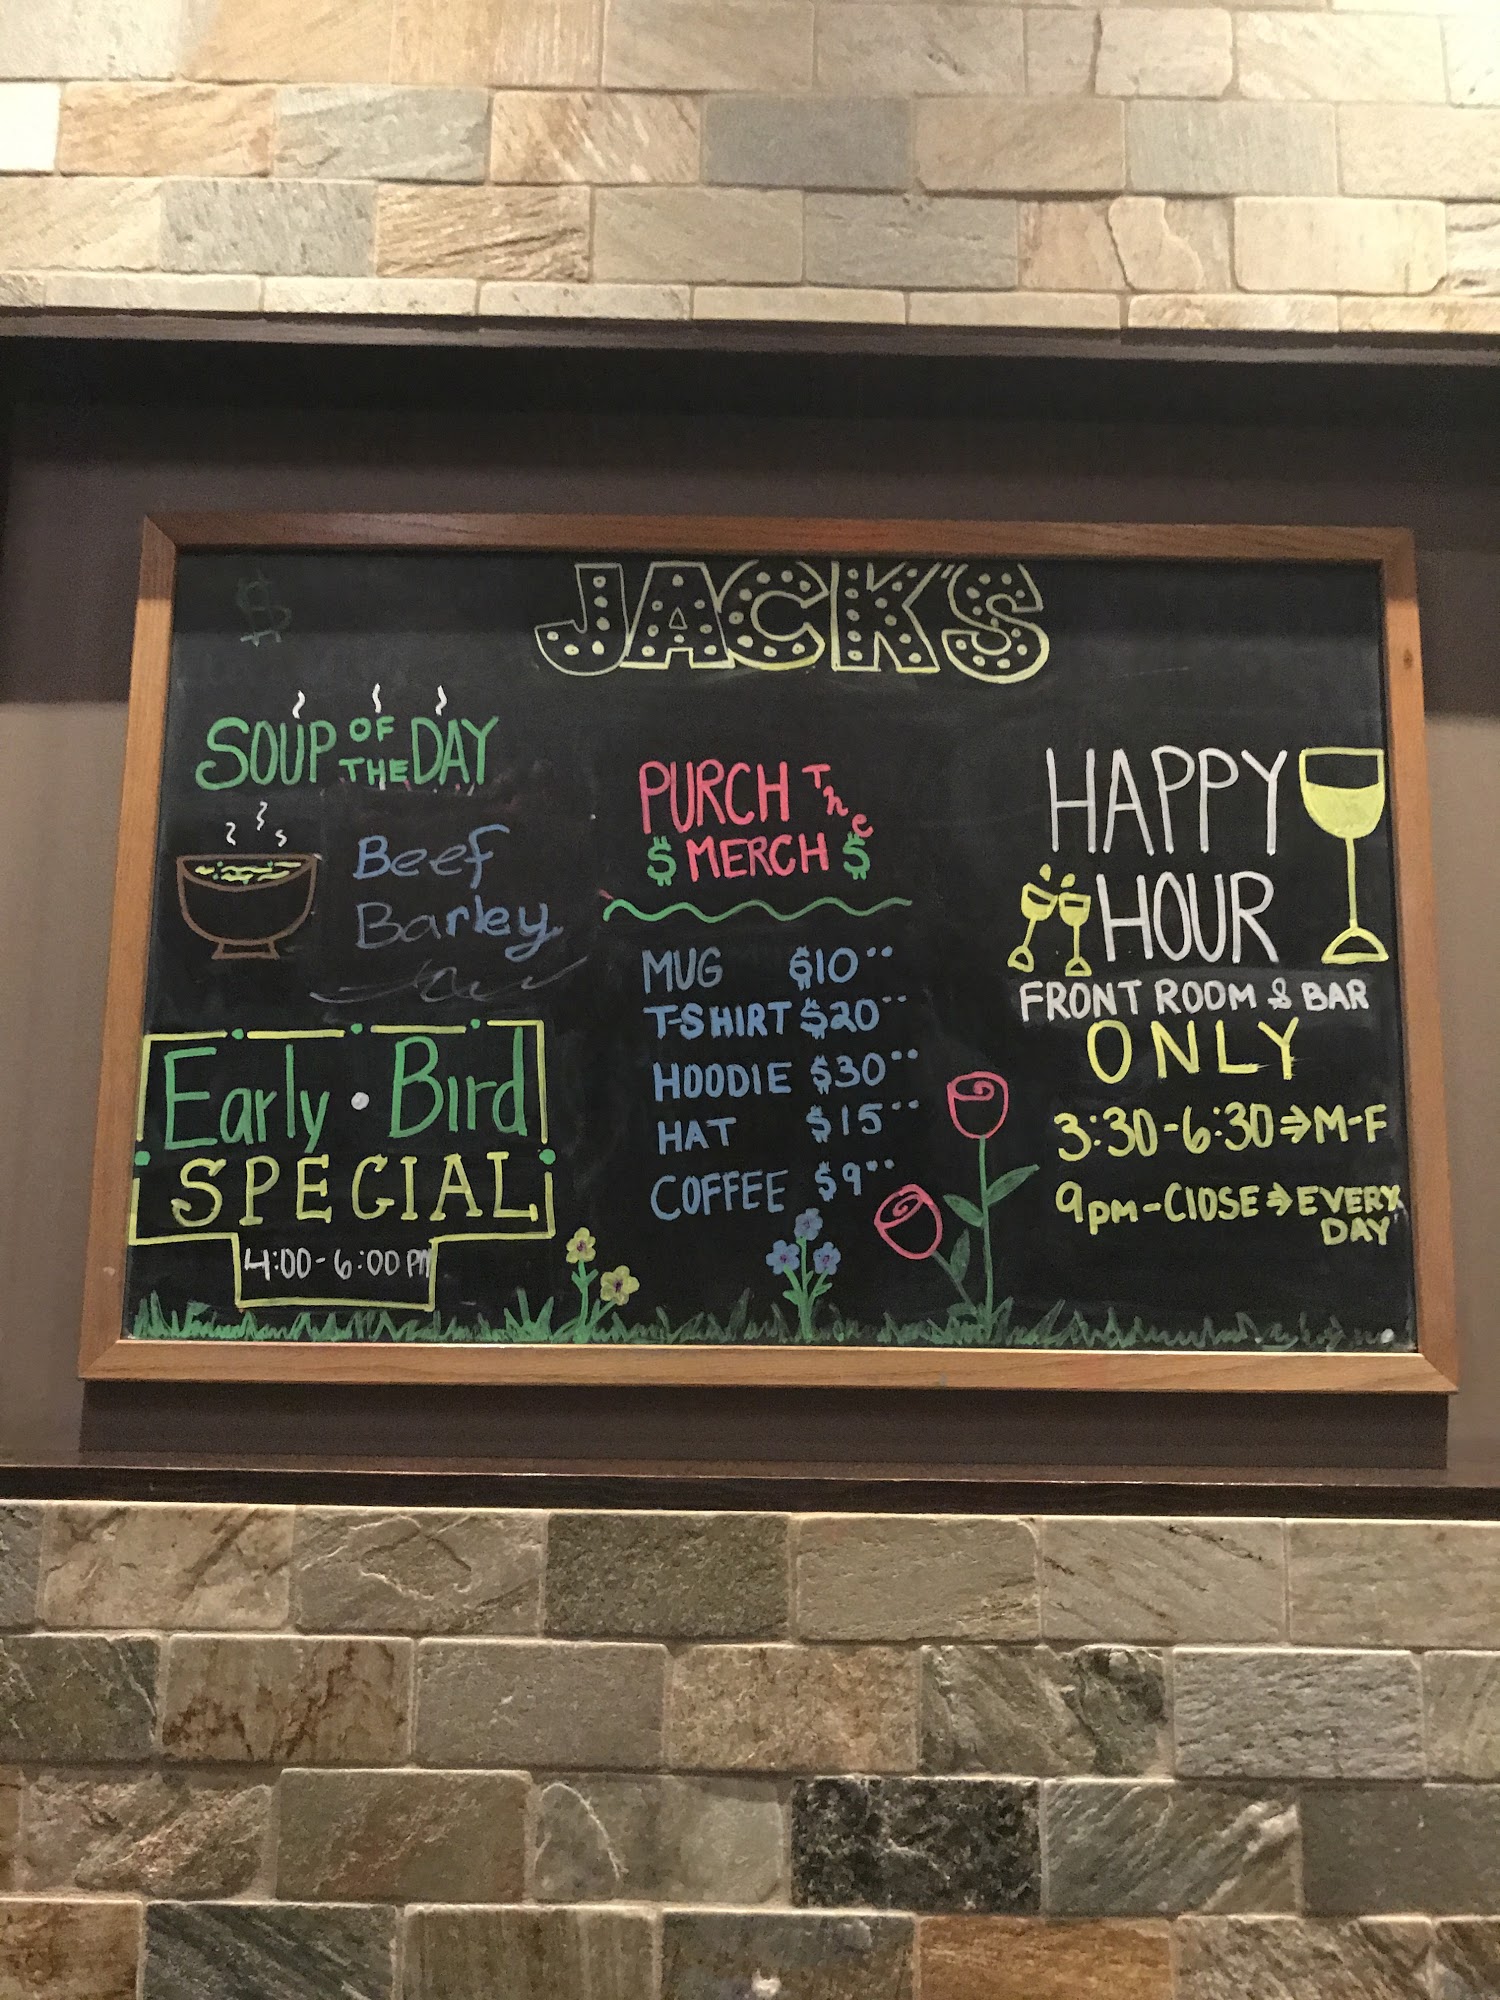 JACK'S
SOUP OF THE DAY
Beef
Barley
Early • Bird
SPECIAL
4:00-6:00 PM
PURCH The
$ MERCH $
MUG $10
T-SHIRT $20
HOODIE $30
HAT $15
COFFEE $9
HAPPY
HOUR
FRONT ROOM & BAR
ONLY
3:30-6:30⇒M-F
9pm-ClOSE⇒EVERY
DAY